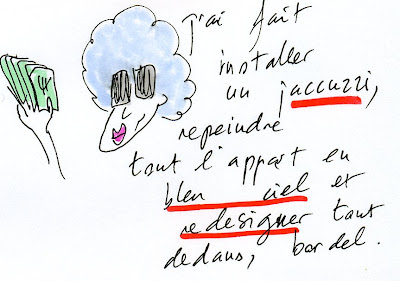 J'ai fait
installer
un jaccuzzi,
repeindre
tout l'appart en
bleu ciel et
redesigner tout
dedans, bordel.